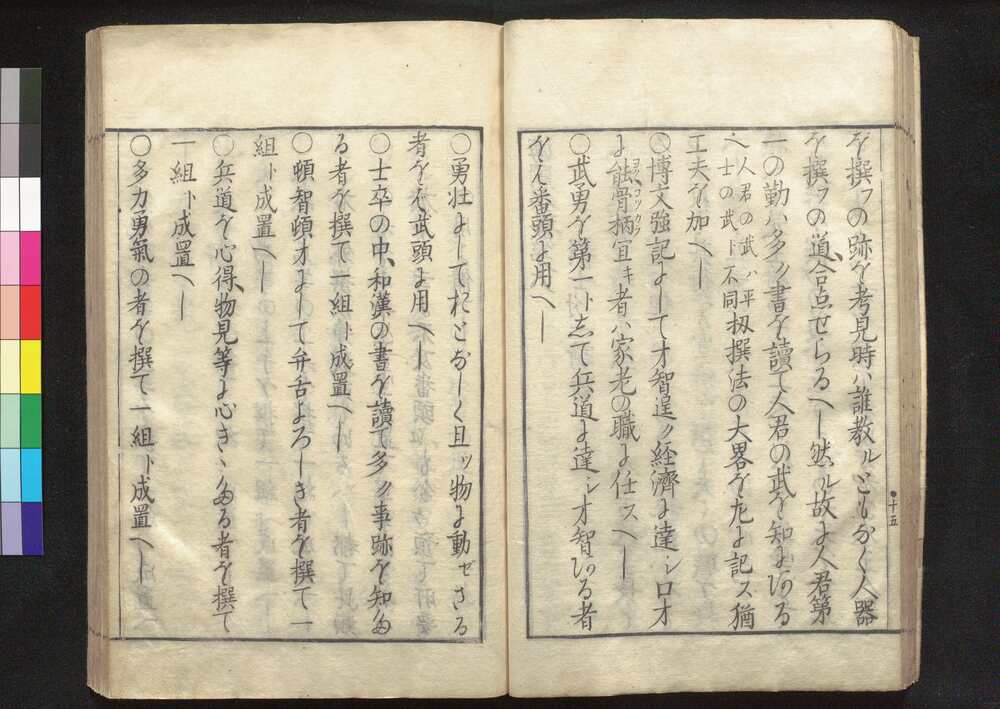 を撰フの跡を考見時ハ誰教ルともなく人器
を撰フの道、合点せらるへし然ル故に人君第
一の勤ハ多ク書を讀て人君の武を知にある
へ人君の武ハ平士の武ト不同扨撰法の大畧を左に記ス猶
工夫を加へし
十五
〇博文強記にして才智逞ク経濟に達シ口才
に能骨柄冝キ者ハ家老の職に任スへし
コツカラ
〇武勇を第一トして兵道に達シ才智ある者
をハ番頭に用へし
〇勇壮にして おとなしく且ツ物に動ぜさる
者をハ武頭に用へし
〇士卒の中、和漢の書を讀て多ク事跡を知た
る者を撰て一組ト成置へし
〇頓智頓才にして弁舌よろしき者を撰て一
組ト成置へし
〇兵道を心得、物見等に心きゝたる者を撰て
一組ト成置へし
〇多力勇氣の者を撰て一組ト成置へし